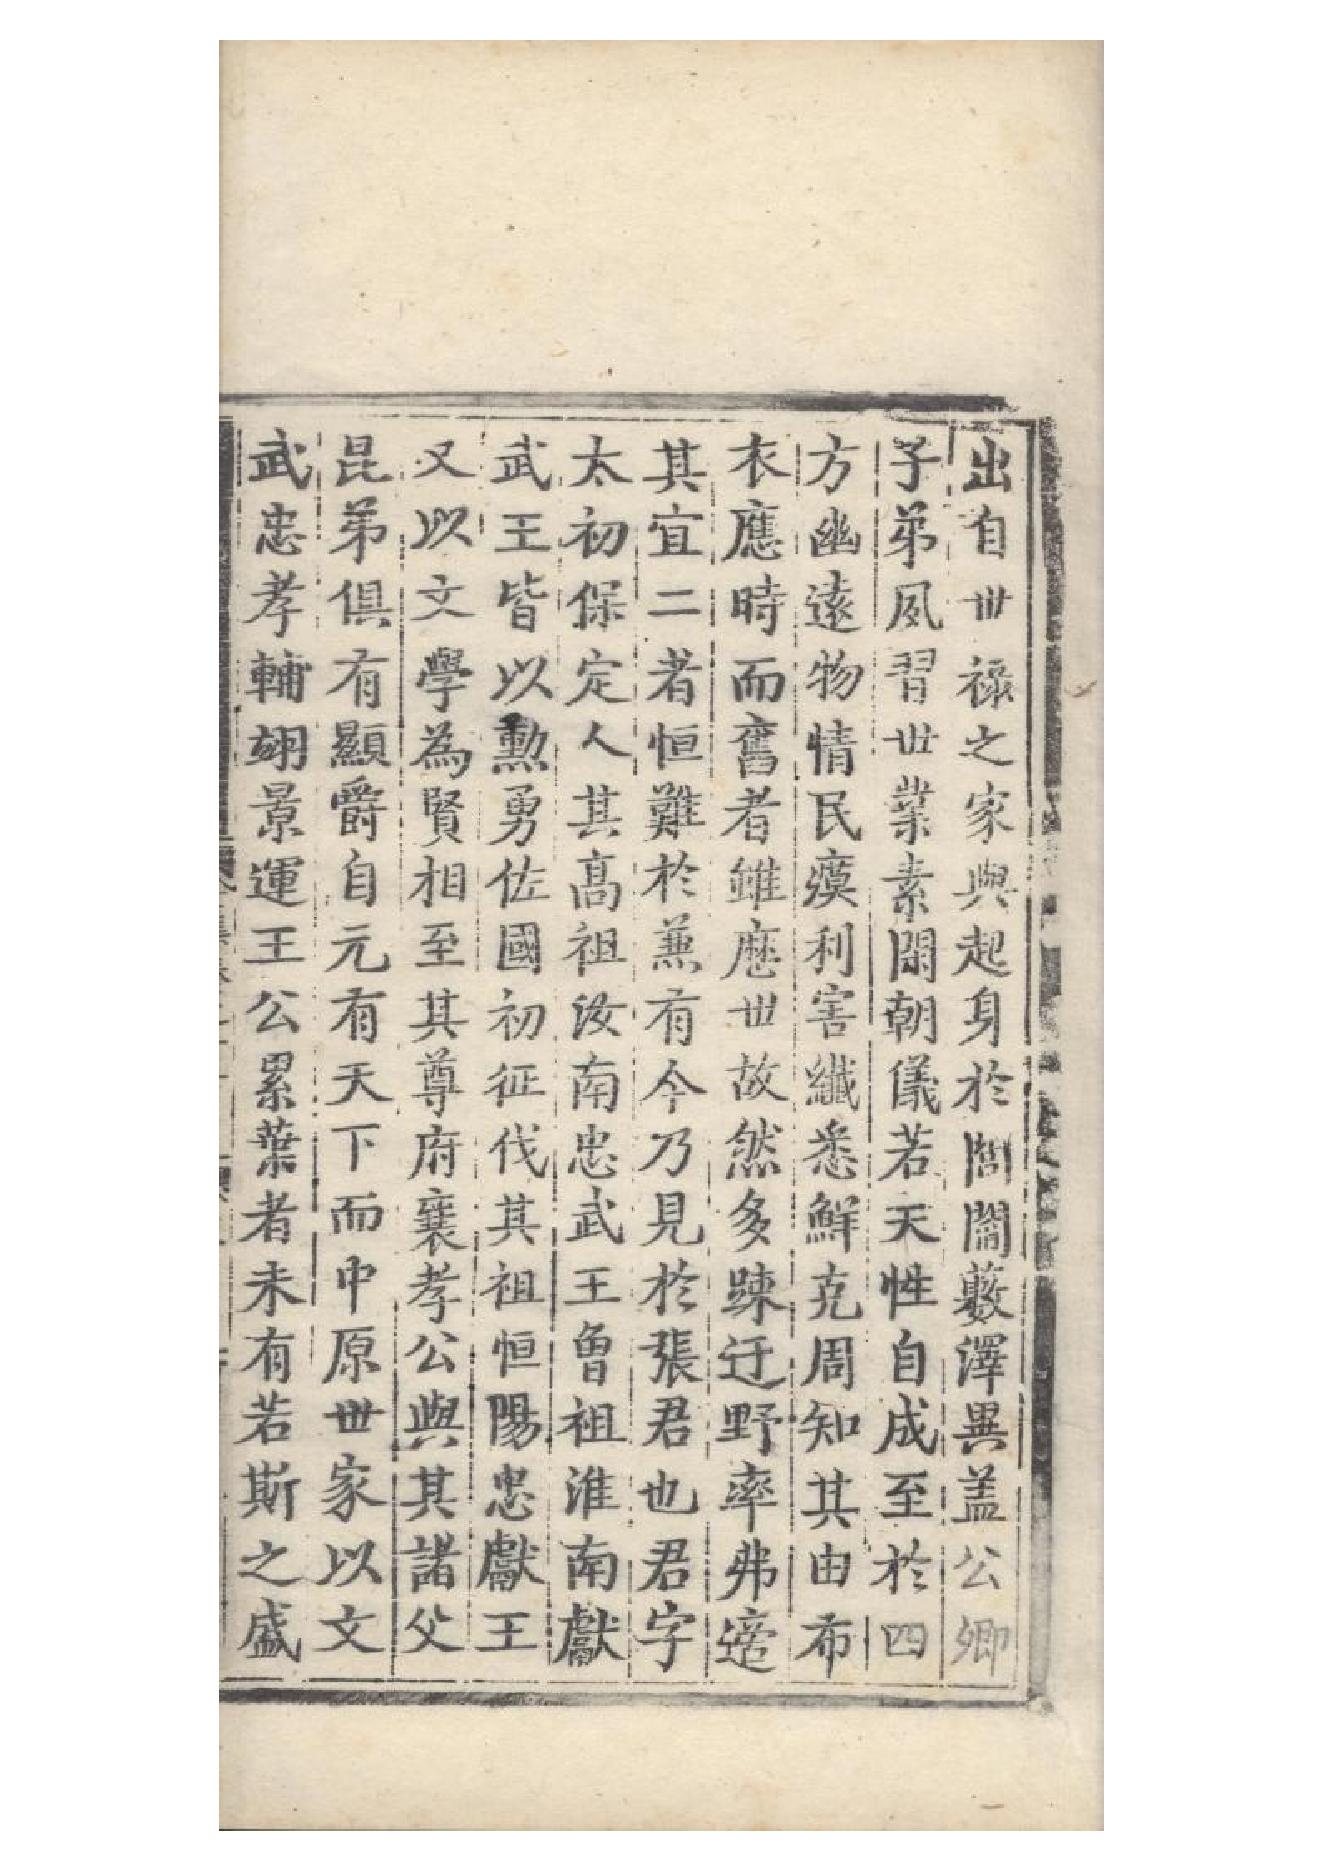 出自世祿之家與起身於閭閻藪澤異盖公卿
子弟夙習世業素閑朝儀若天性自成至於四
方幽遠物情民瘼利害纖悉鮮克周知其由布
衣應時而奮者雖歷世故然多踈迂野率弗遑
其宜二者恒難於兼有今乃見於張君也君字
太初保定人其髙祖汝南忠武王曾祖淮南獻
武王皆以勲勇佐國初征伐其祖恒陽忠獻王
又以文學為賢相至其尊府襄孝公與其諸父
昆弟俱有顯爵自元有天下而中原世家以文
武忠孝輔翊景運王公累葉者未有若斯之盛